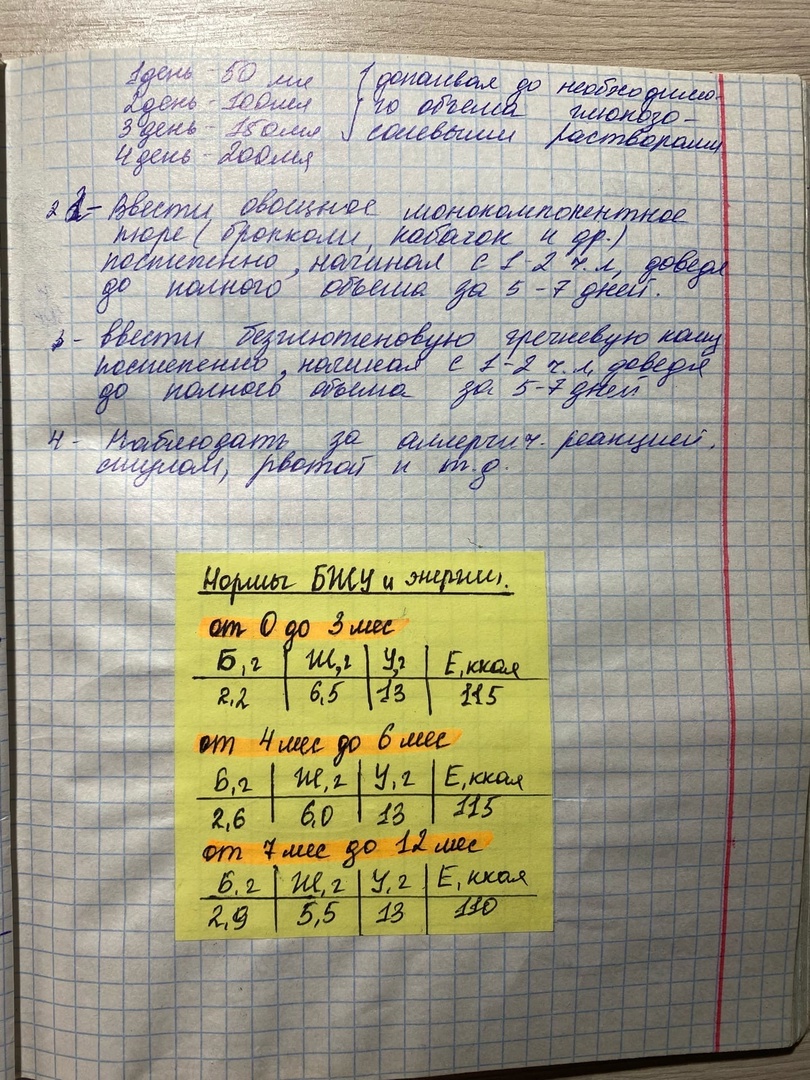 1 день - 50 мл { допаивая до необходимо-
2 день - 100мл го объема глюкозо-
3 день - 150мл солевыми растворами
4 день - 200мл
2 - Ввести овощное монокомпонентное
пюре (брокколи, кабачок и др.)
постепенно, начиная с 1-2 ч.л, доведя
до полного объема за 5-7 дней.
3 - Ввести безглютеновую гречневую кашу
постепенно, начиная с 1-2 ч.л, доведя
до полного объема за 5-7 дней
4 - Наблюдать за аллергич. реакцией,
стулом, рвотой и т.д.
Нормы БЖУ и энергии.
от 0 до 3 мес
Б, г Ж, г У, г Е, ккал
2,2 6,5 13 115
от 4 мес до 6 мес
Б, г Ж, г У, г Е, ккал
2,6 6,0 13 115
от 7 мес до 12 мес
Б, г Ж, г У, г Е, ккал
2,9 5,5 13 110